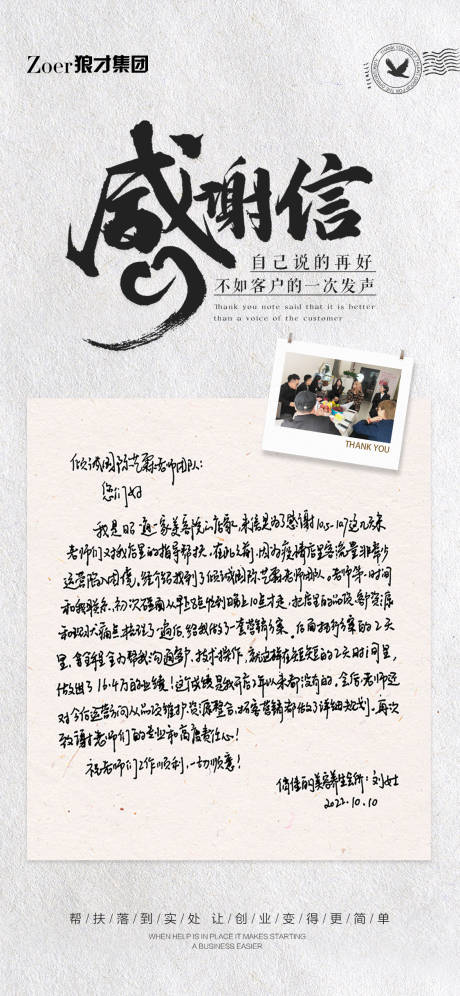 Zoer狼才集团
感谢信
自己说的再好
不如客户的一次发声
Thank you note said that it is better
than a voice of the customer
THANK YOU
倾诚国际艺霖老师团队:
您们好
我是昭通一家美容院的店家,来信是为了感谢10.5-10.7这几天来
老师们对我店里的指导帮扶。在此之前,因为疫情店里客流量非常少
运营陷入困境,经介绍找到了倾诚国际艺霖老师团队。老师第一时间
和我联系,初次碰面从早上8点给到晚上10点才走,把店里的品项、客资源
和现状痛点梳理了一遍后,给我做了一套营销方案。后面执行方案的2天
里,
帮我沟通客户、技术操作,就这样在短短的2天时间里,
做出了16.4万的业绩!这个业绩是我开店2年以来都没有的。今后,老师还
对今后运营方向从品项维护、资源整合、拓客营销都做了详细规划。再次
致谢老师们的专业和高度责任心!
祝老师们工作顺利,一切顺意!
俏佳丽美容养生会所:刘女士
2022.10.10
帮/扶/落/到/实/处 让/创/业/变/得/更/简/单
WHEN HELP IS IN PLACE IT MAKES STARTING
A BUSINESS EASIER